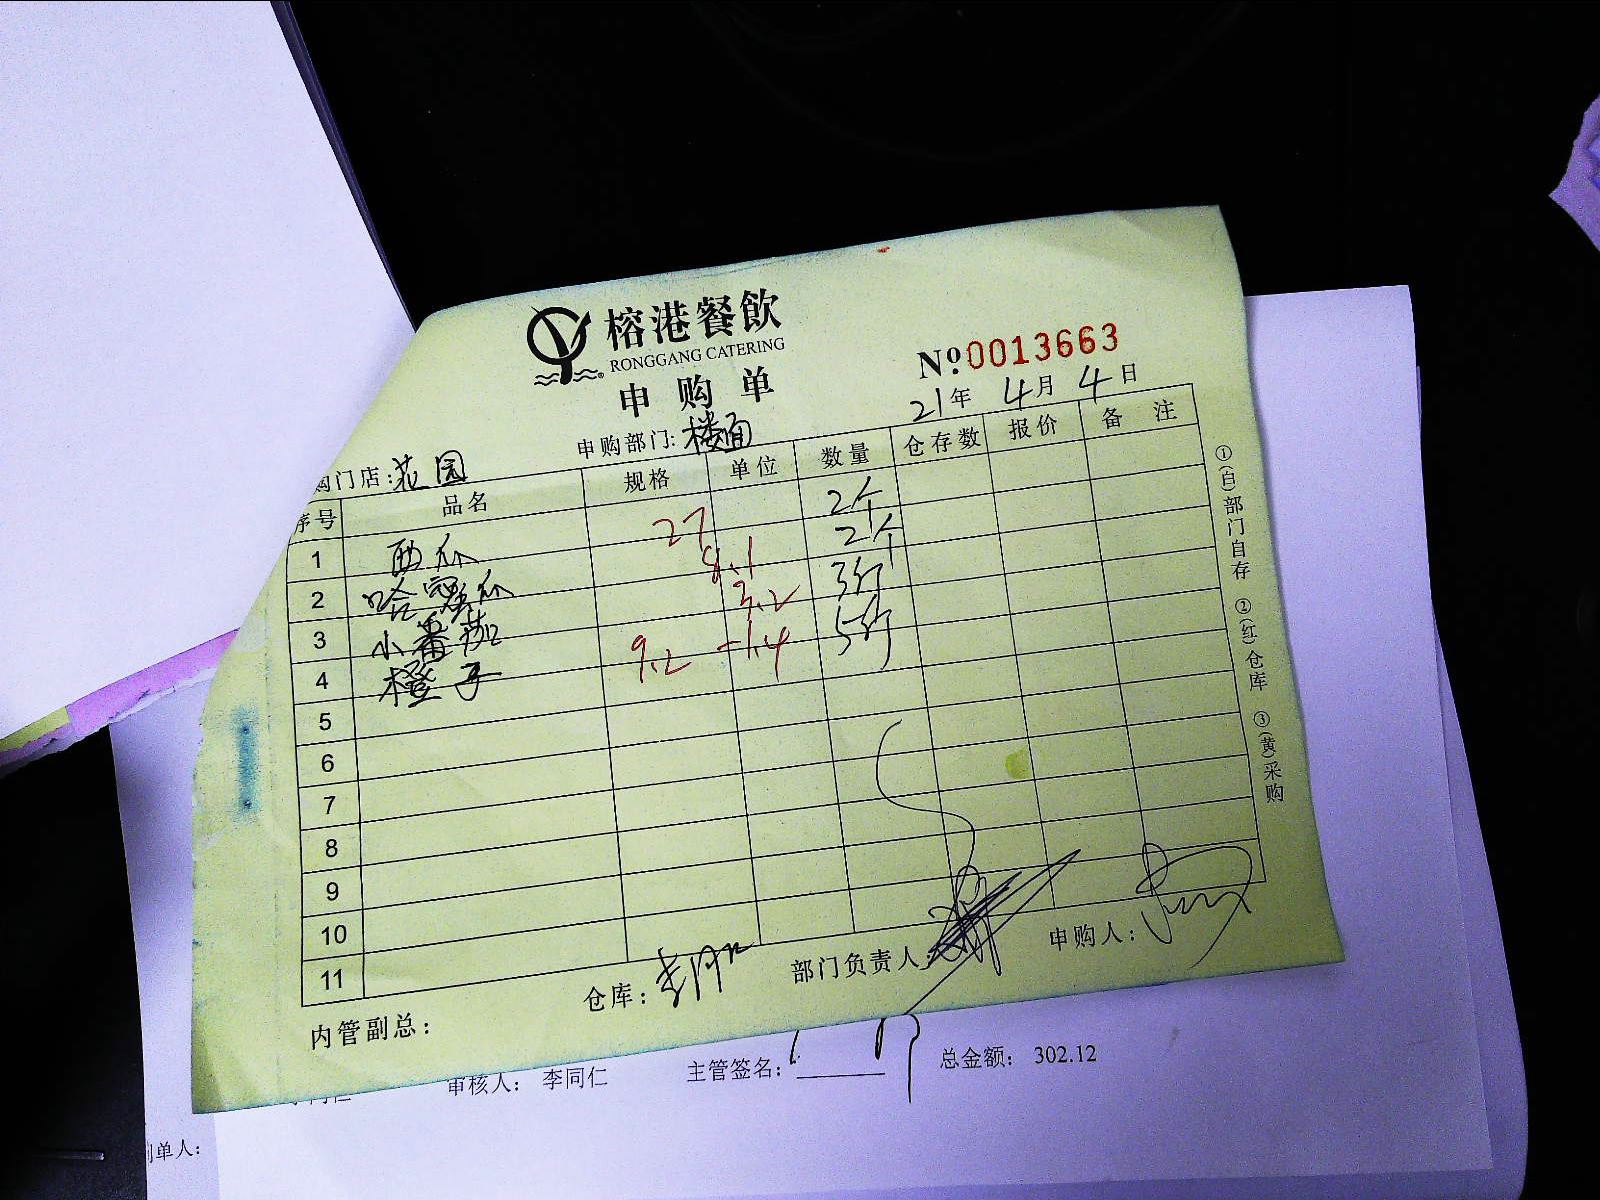 榕港餐飲
RONGGANG CATERING
申购单
№ 0013663
21年 4月 4日
购门店:花园 申购部门:楼面
序号 品名 规格 单位 数量 仓存数 报价 备注
1 西瓜 27 2个
2 哈密瓜 8.1 2个
3 小番茄 3.2 3斤
4 橙子 9.2 -1.4 5斤
5
6
7
8
9
10
11
内管副总: 仓库: 部门负责人: 申购人:
①(白)部门自存 ②(红)仓库 ③(黄)采购
审核人: 李同仁 主管签名: 总金额: 302.12
单人: